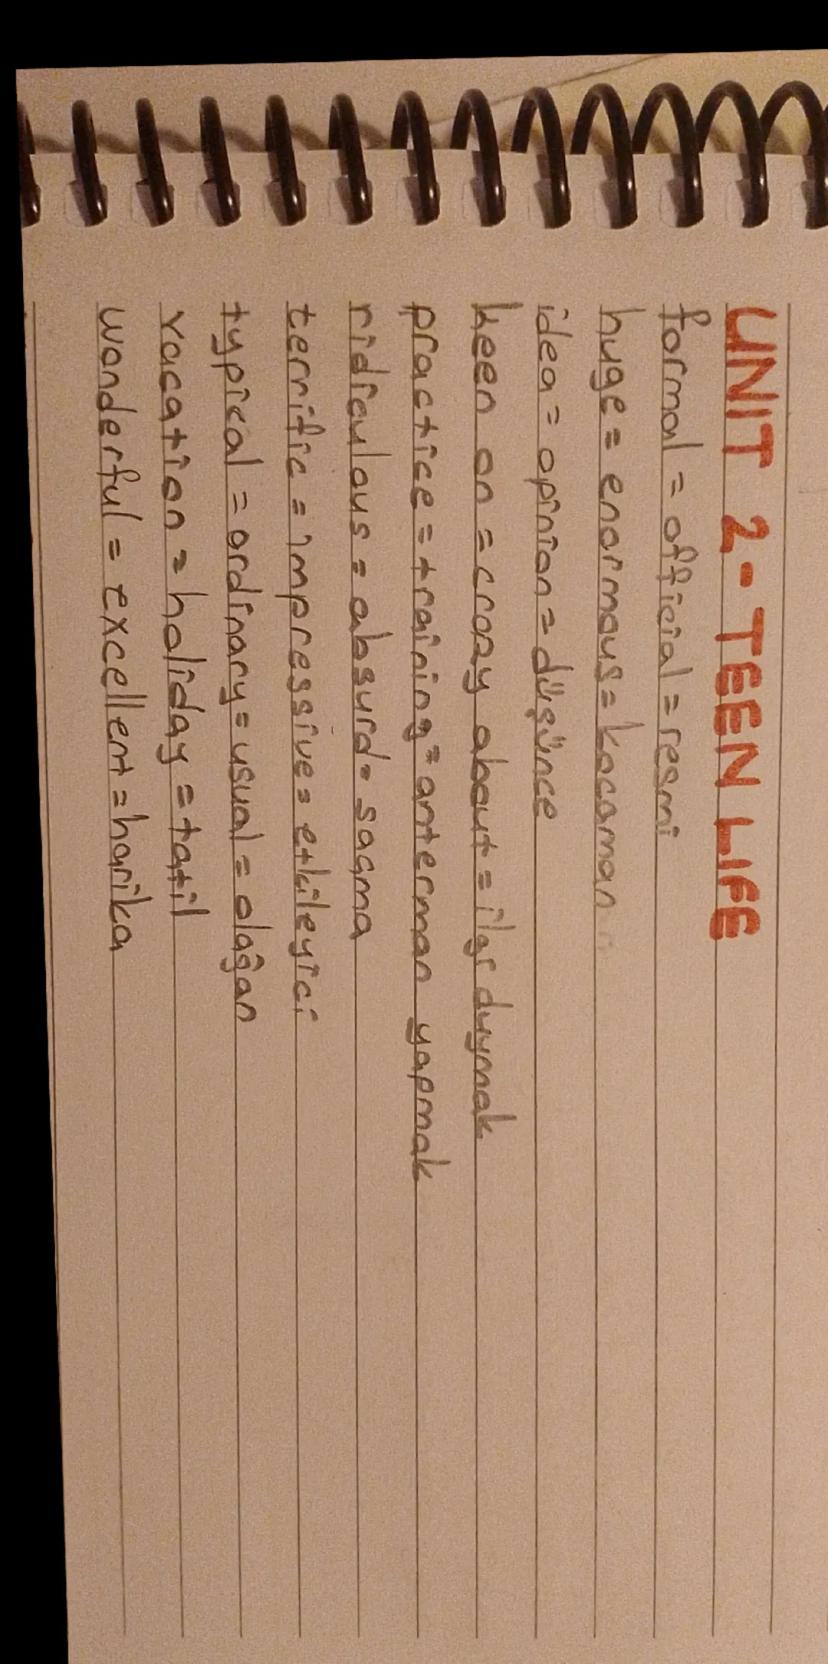 UNIT 2-TEEN LIFE
formal = official = resmi
huge = enormous = kocaman
idea = opinion = düşünce
keen on = crazy about = ilgi duymak
practice = training = anterman yapmak
ridiculous = absurd = saçma
terrific = impressive = etkileyici
typical = ordinary = usual = olağan
vacation = holiday = tatil
wonderful = excellent = harika